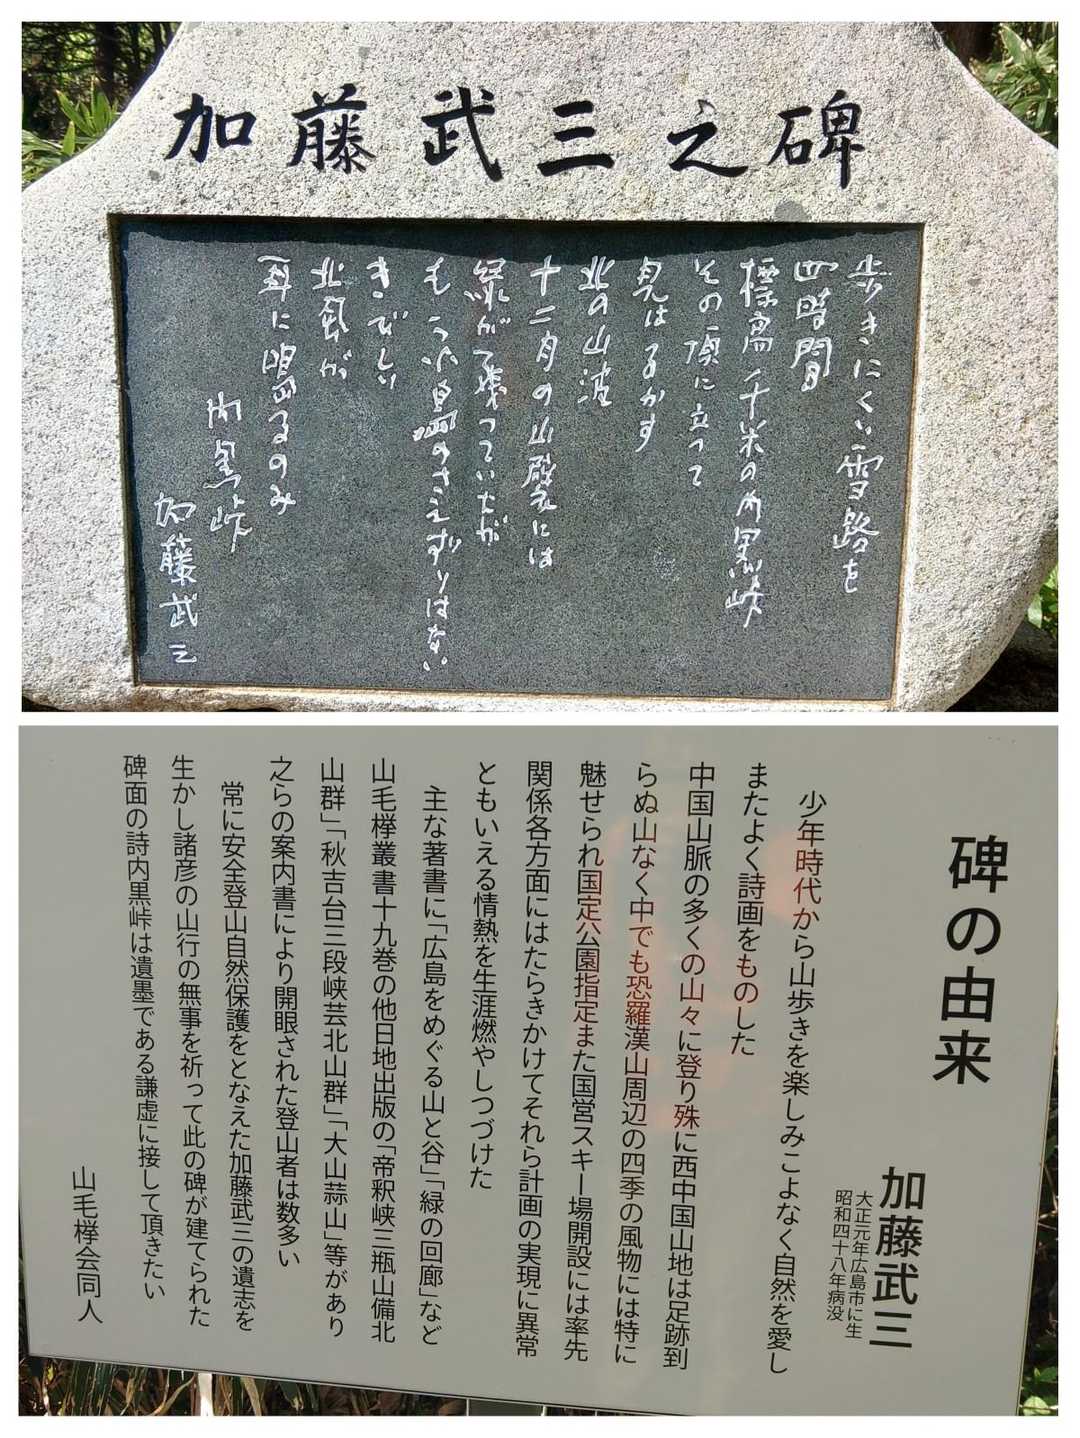 加藤武三之碑
歩きにくい雪路を
四時間
標高千米の内黒峠
その頂に立って
見はるかす
北の山波
十二月の山襞には
緑が残っていたが
もう小鳥のさえずりはない
きびしい
北風が
耳に鳴るのみ
内黒峠
加藤武三
碑の由来
加藤武三
大正元年広島市に生
昭和四十八年病没
少年時代から山歩きを楽しみこよなく自然を愛し
またよく詩画をものした
中国山脈の多くの山々に登り殊に西中国山地は足跡到
らぬ山なく中でも恐羅漢山周辺の四季の風物には特に
魅せられ国定公園指定また国営スキー場開設には率先
関係各方面にはたらきかけてそれら計画の実現に異常
ともいえる情熱を生涯燃やしつづけた
主な著書に「広島をめぐる山と谷」「緑の回廊」など
山毛欅叢書十九巻の他日地出版の「帝釈峡三瓶山備北
山群」「秋吉台三段峡芸北山群」「大山蒜山」等があり
之らの案内書により開眼された登山者は数多い
常に安全登山自然保護をとなえた加藤武三の遺志を
生かし諸彦の山行の無事を祈って此の碑が建てられた
碑面の詩内黒峠は遺墨である謙虚に接して頂きたい
山毛欅会同人